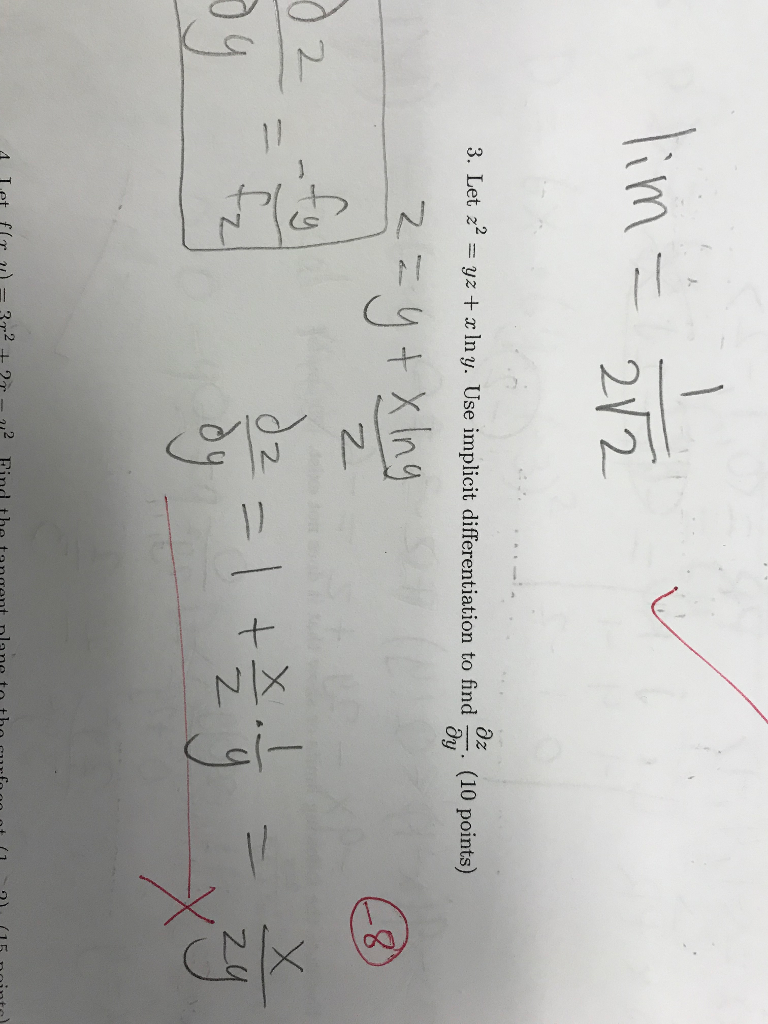 lim = 1/(2√2)
3. Let z² = yz + x ln y. Use implicit differentiation to find ∂z/∂y. (10 points)
-8
z = y + (x ln y)/z
∂z/∂y = -fy/fz
∂z/∂y = 1 + x/z · 1/y = x/zy
4. Let f(x, y) = 3x² + 2x − y². Find the tangent plane to the surface at (1, 2). (15 points)